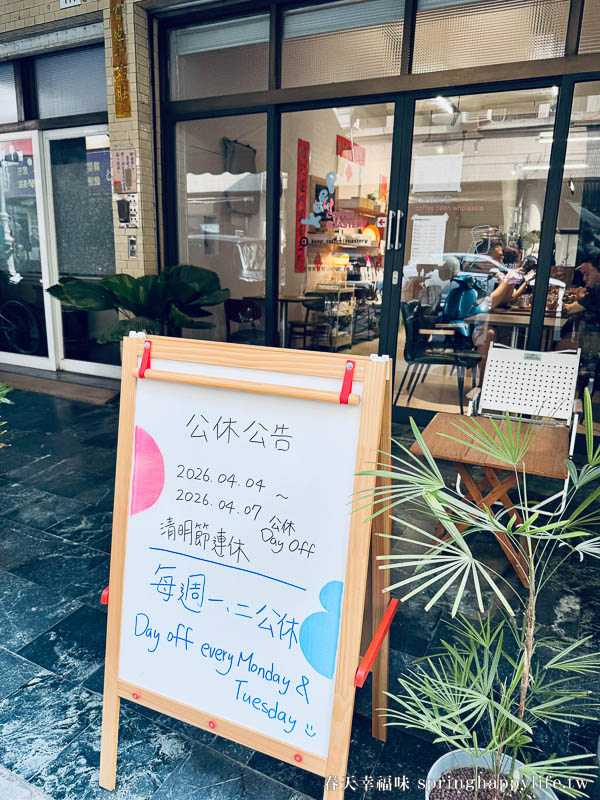 公休公告
2026.04.04 ～
2026.04.07 公休
Day Off
清明節連休
每週一、二公休
Day off every Monday &
Tuesday
春天幸福味 springhappylife.tw